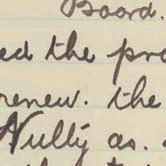 Board.
the pro
renew. the
Nully as.